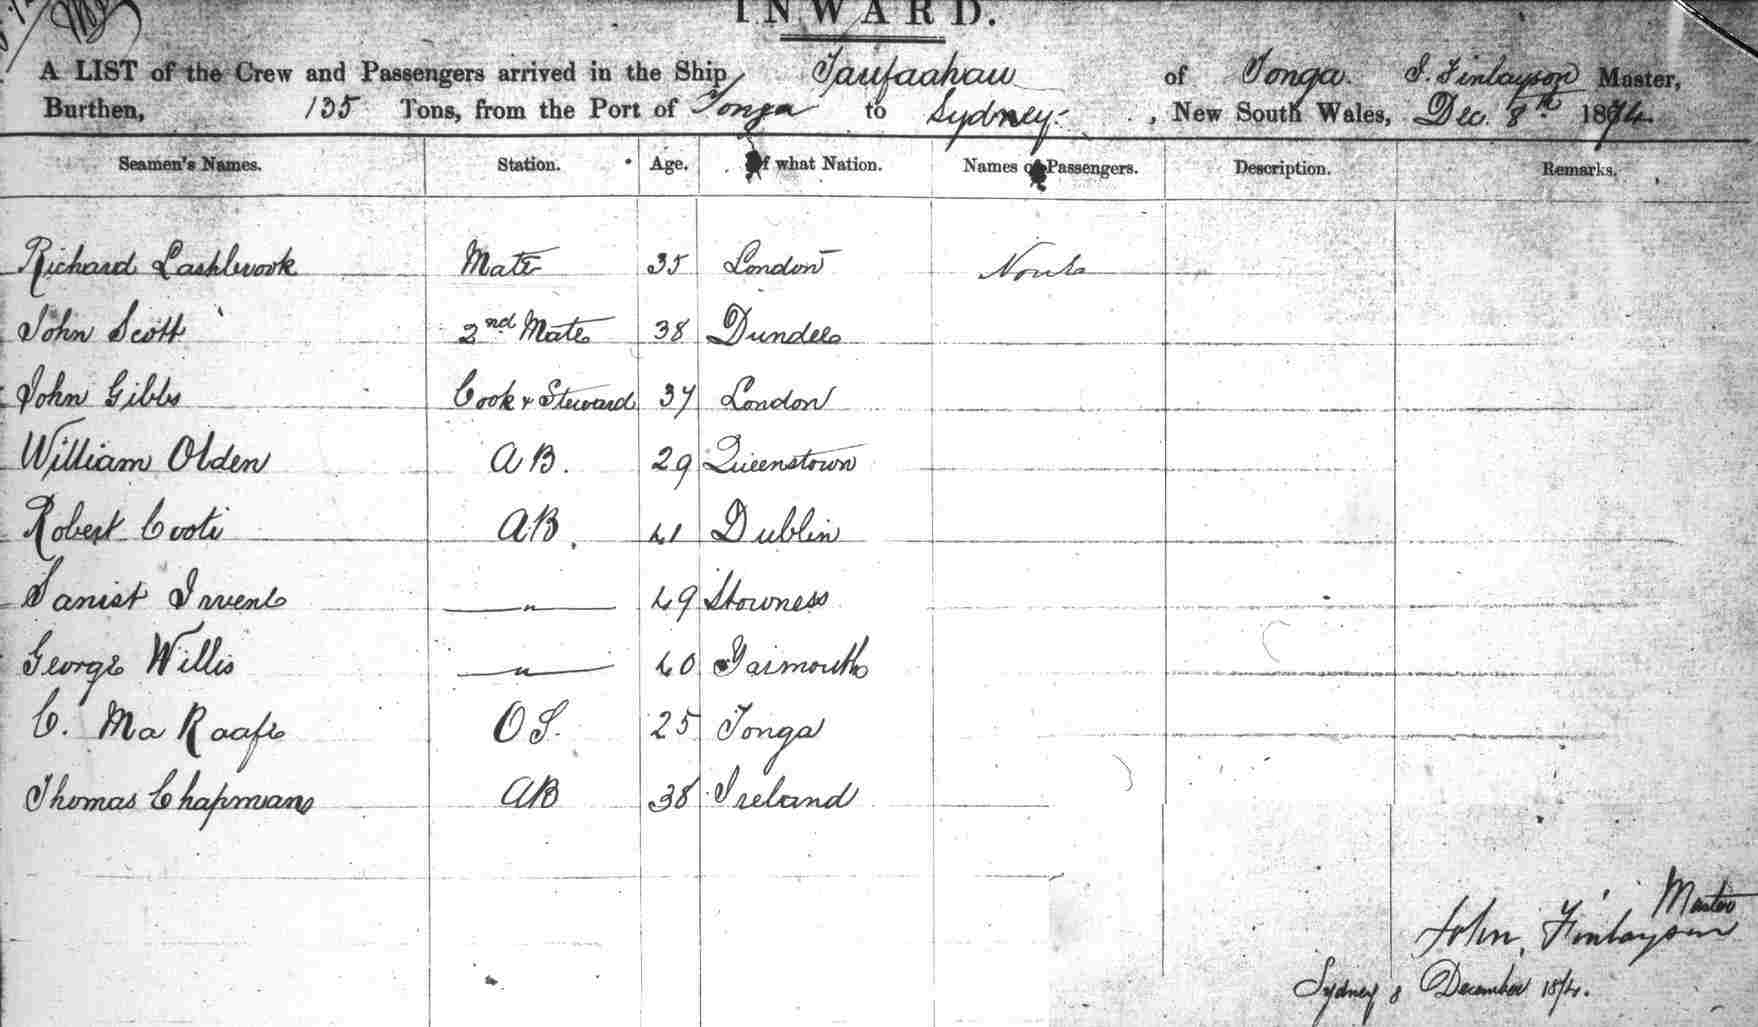 INWARD.
A LIST of the Crew and Passengers arrived in the Ship Taufaahau of Tonga. J. Finlayson Master,
Burthen, 135 Tons, from the Port of Tonga to Sydney. , New South Wales, Dec. 8th 1874.
Seamen's Names. Station. Age. Of what Nation. Names of Passengers. Description. Remarks.
Richard Lashbrook Mate 35 London None
John Scott 2nd Mate 38 Dundee
John Gibbs Cook & Steward 37 London
William Olden AB. 29 Queenstown
Robert Coote AB. 41 Dublin
" 49 Stowness
George Willis " 40 Yarmouth
C. Ma Raafe OS. 25 Tonga
Thomas Chapman AB 38 Ireland
Master
John Finlayson
Sydney 8 December 1874.